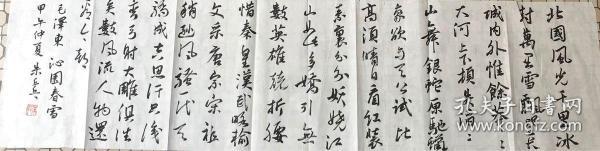 北国风光千里冰
封万里雪飘望长
城内外惟余莽々
大河上下顿失滔々
山舞银蛇原驰蜡
象欲与天公试比
高须晴日看红装
素裹分外妖娆江
山如此多娇引无
数英雄竞折腰
惜秦皇汉武略输
文采唐宗宋祖
稍逊风骚一代天
骄成吉思汗只识
弯弓射大雕俱往
矣数风流人物还
看今朝
毛泽东 沁园春雪
甲午仲夏
孔夫子旧书网